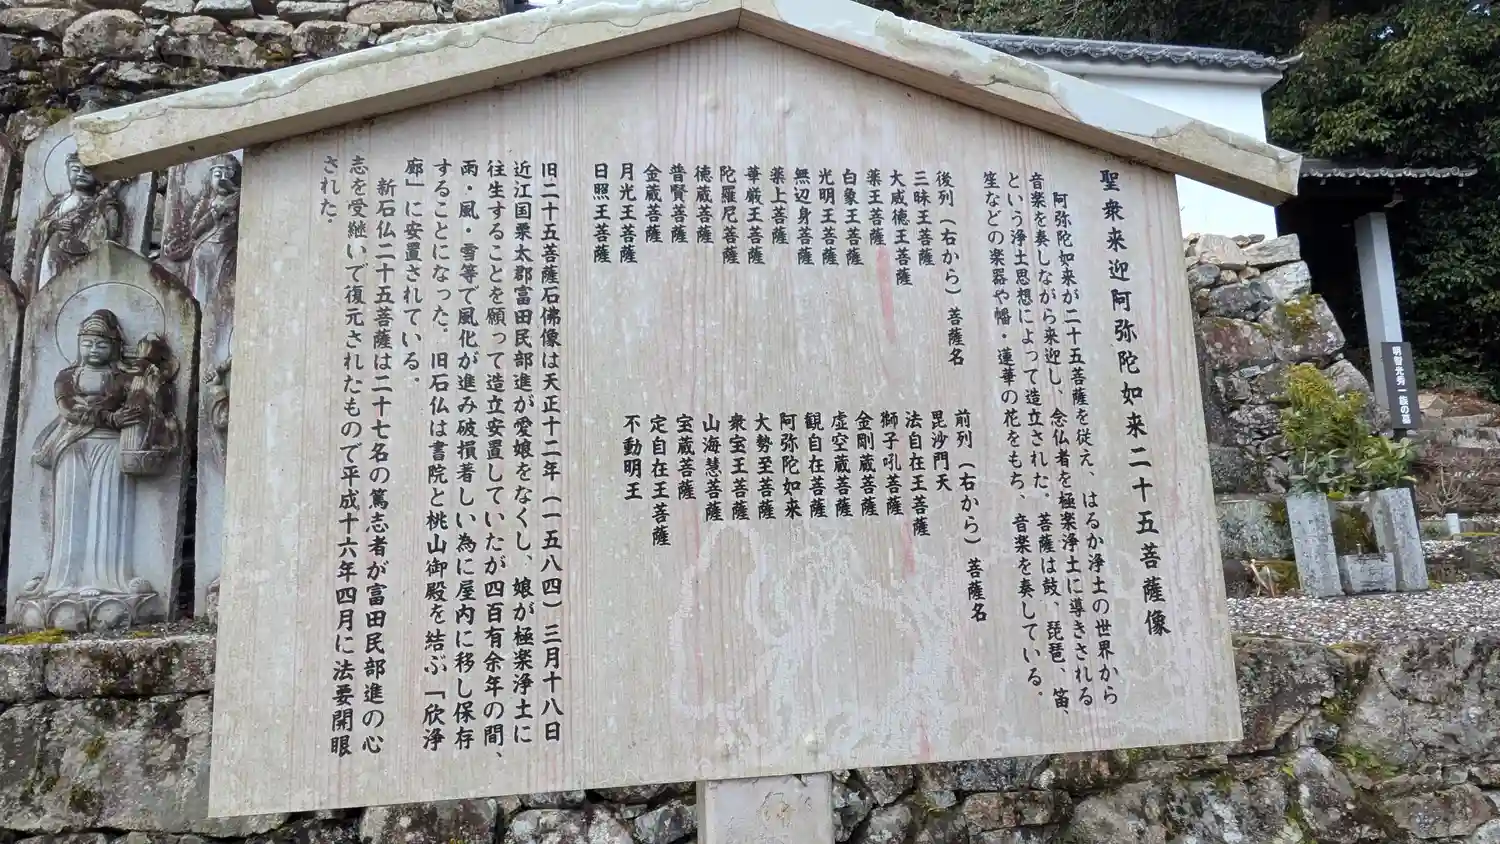 聖衆来迎阿弥陀如来二十五菩薩像
阿弥陀如来が二十五菩薩を従え、はるか浄土の世界から
音楽を奏しながら来迎し、念仏者を極楽浄土に導きされる
という浄土思想によって造立された。菩薩は鼓、琵琶、笛、
笙などの楽器や幡・蓮華の花をもち、音楽を奏している。
後列（右から）菩薩名
三昧王菩薩
大威徳王菩薩
薬王菩薩
白象王菩薩
光明王菩薩
無辺身菩薩
薬上菩薩
華厳王菩薩
陀羅尼菩薩
徳蔵菩薩
普賢菩薩
金蔵菩薩
月光王菩薩
日照王菩薩
前列（右から）菩薩名
毘沙門天
法自在王菩薩
獅子吼菩薩
金剛蔵菩薩
虚空蔵菩薩
観自在菩薩
阿弥陀如来
大勢至菩薩
衆宝王菩薩
山海慧菩薩
宝蔵菩薩
定自在王菩薩
不動明王
旧二十五菩薩石佛像は天正十二年（一五八四）三月十八日
近江国栗太郡富田民部進が愛娘をなくし、娘が極楽浄土に
往生することを願って造立安置していたが四百有余年の間、
雨・風・雪等で風化が進み破損著しい為に屋内に移し保存
することになった。旧石仏は書院と桃山御殿を結ぶ「欣浄
廊」に安置されている。
新石仏二十五菩薩は二十七名の篤志者が富田民部進の心
志を受継いで復元されたもので平成十六年四月に法要開眼
された。
明智光秀一族の墓